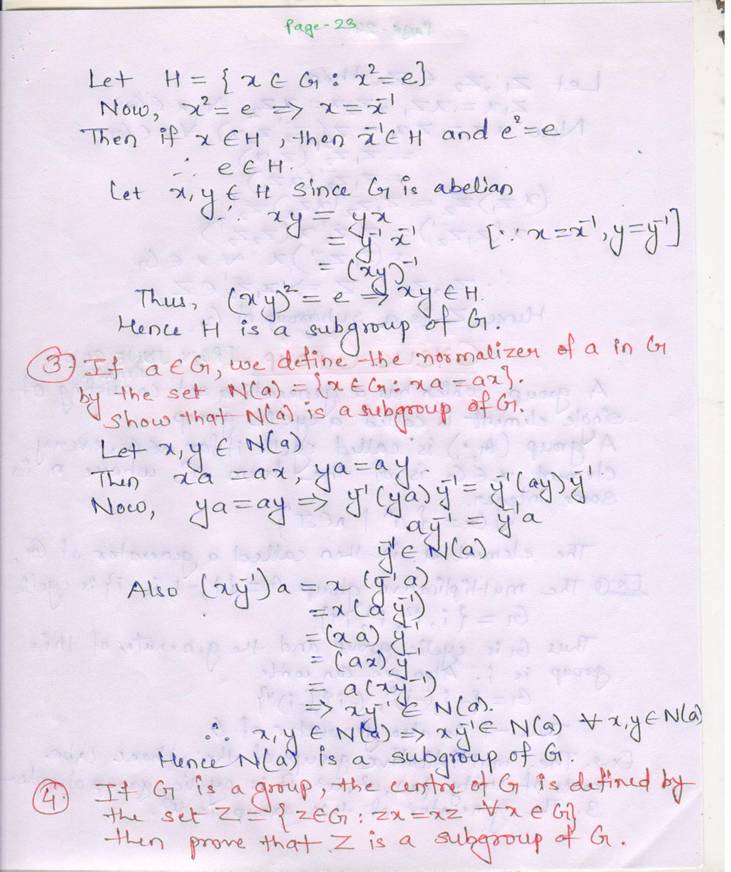 Page-23
Let H = { x ∈ G : x² = e}
Now, x² = e ⟹ x = x⁻¹
Then if x ∈ H, then x⁻¹ ∈ H and e² = e
∴ e ∈ H.
Let x, y ∈ H Since G is abelian
∴ xy = yx
= y⁻¹ x⁻¹ [∵ x = x⁻¹, y = y⁻¹]
= (xy)⁻¹
Thus, (xy)² = e ⟹ xy ∈ H.
Hence H is a subgroup of G.
3. If a ∈ G, we define the normalizer of a in G
by the set N(a) = {x ∈ G : xa = ax}.
Show that N(a) is a subgroup of G.
Let x, y ∈ N(a)
Then xa = ax, ya = ay
Now, ya = ay ⟹ y⁻¹(ya)y⁻¹ = y⁻¹(ay)y⁻¹
ay⁻¹ = y⁻¹a
y⁻¹ ∈ N(a)
Also (xy⁻¹)a = x(y⁻¹a)
= x(ay⁻¹)
= (xa)y⁻¹
= (ax)y⁻¹
= a(xy⁻¹)
⟹ xy⁻¹ ∈ N(a).
∴ x, y ∈ N(a) ⟹ xy⁻¹ ∈ N(a) ∀ x, y ∈ N(a)
Hence N(a) is a subgroup of G.
4. If G is a group, the centre of G is defined by
the set Z = {z ∈ G : zx = xz ∀ x ∈ G}
then prove that Z is a subgroup of G.